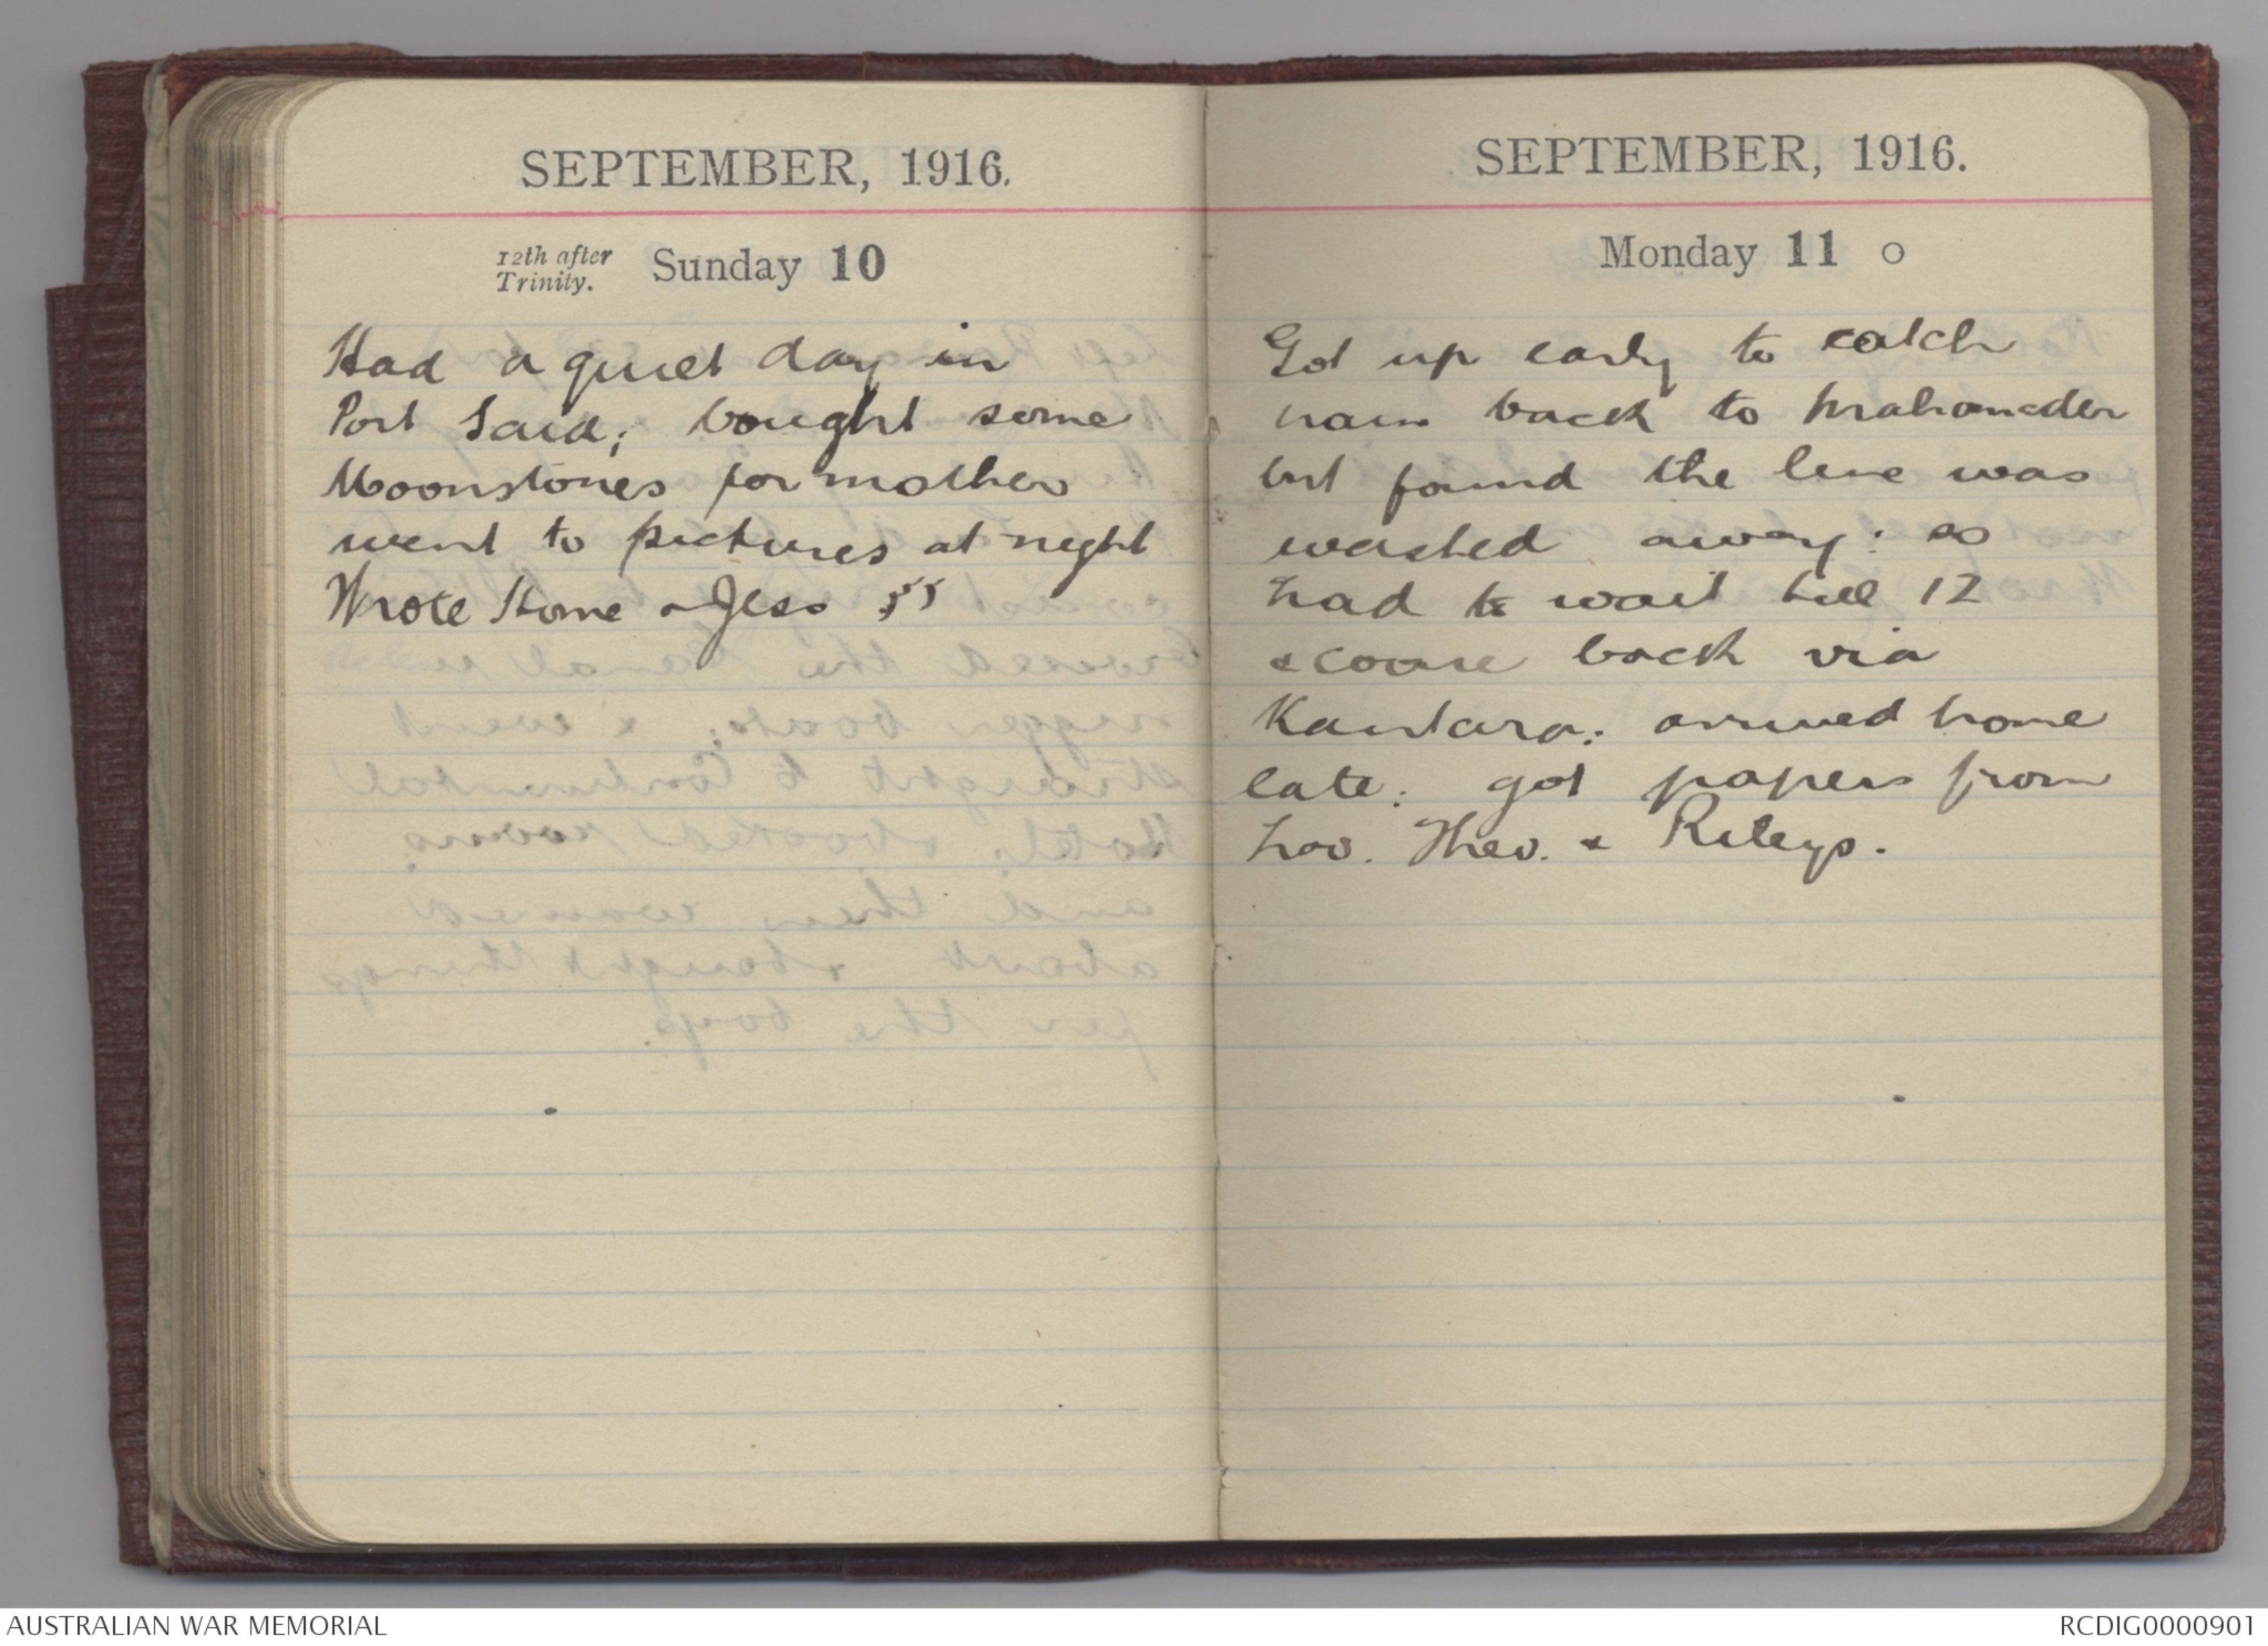 SEPTEMBER, 1916.
12th after
Trinity. Sunday 10
Had a quiet day in
Port Said; bought some
Moonstones for mother
went to pictures at night
Wrote Home & Jess
SEPTEMBER, 1916.
Monday 11 O
Got up early to catch
train back to Mahamder
but found the line was
washed away: so
had to wait till 12
& came back via
Kantara: arrived home
late: got papers from
Theo. & Rileys.
AUSTRALIAN WAR MEMORIAL
RCDIG0000901